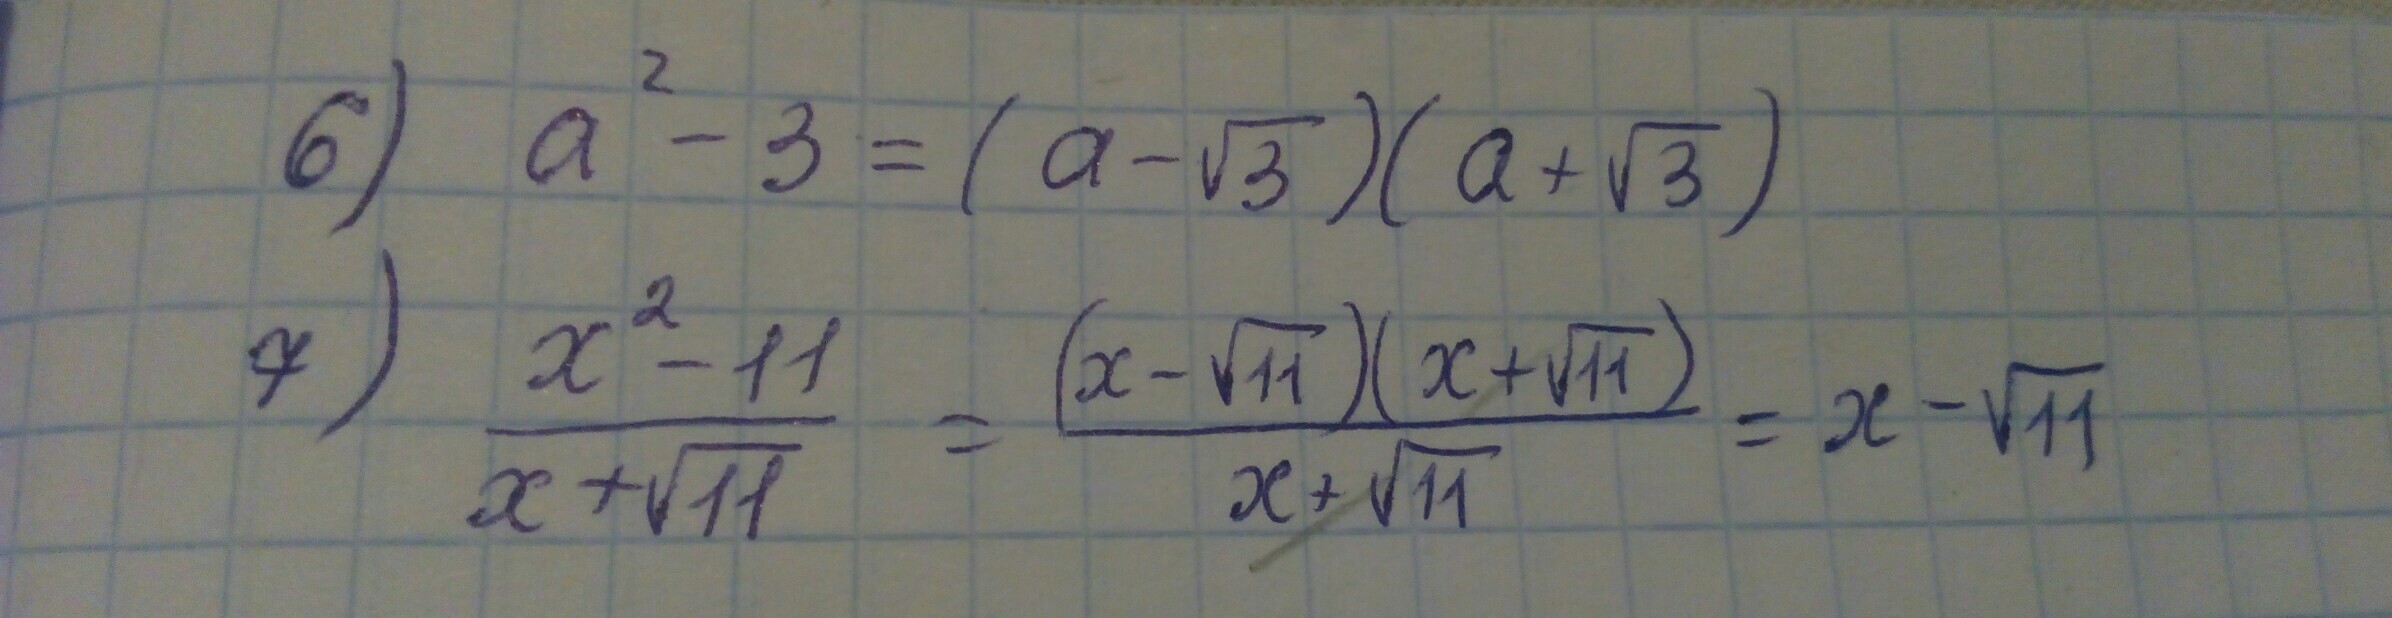 6) a² - 3 = (a - √3)(a + √3)
7) (x² - 11)/(x + √11) = ((x - √11)(x + √11))/(x + √11) = x - √11